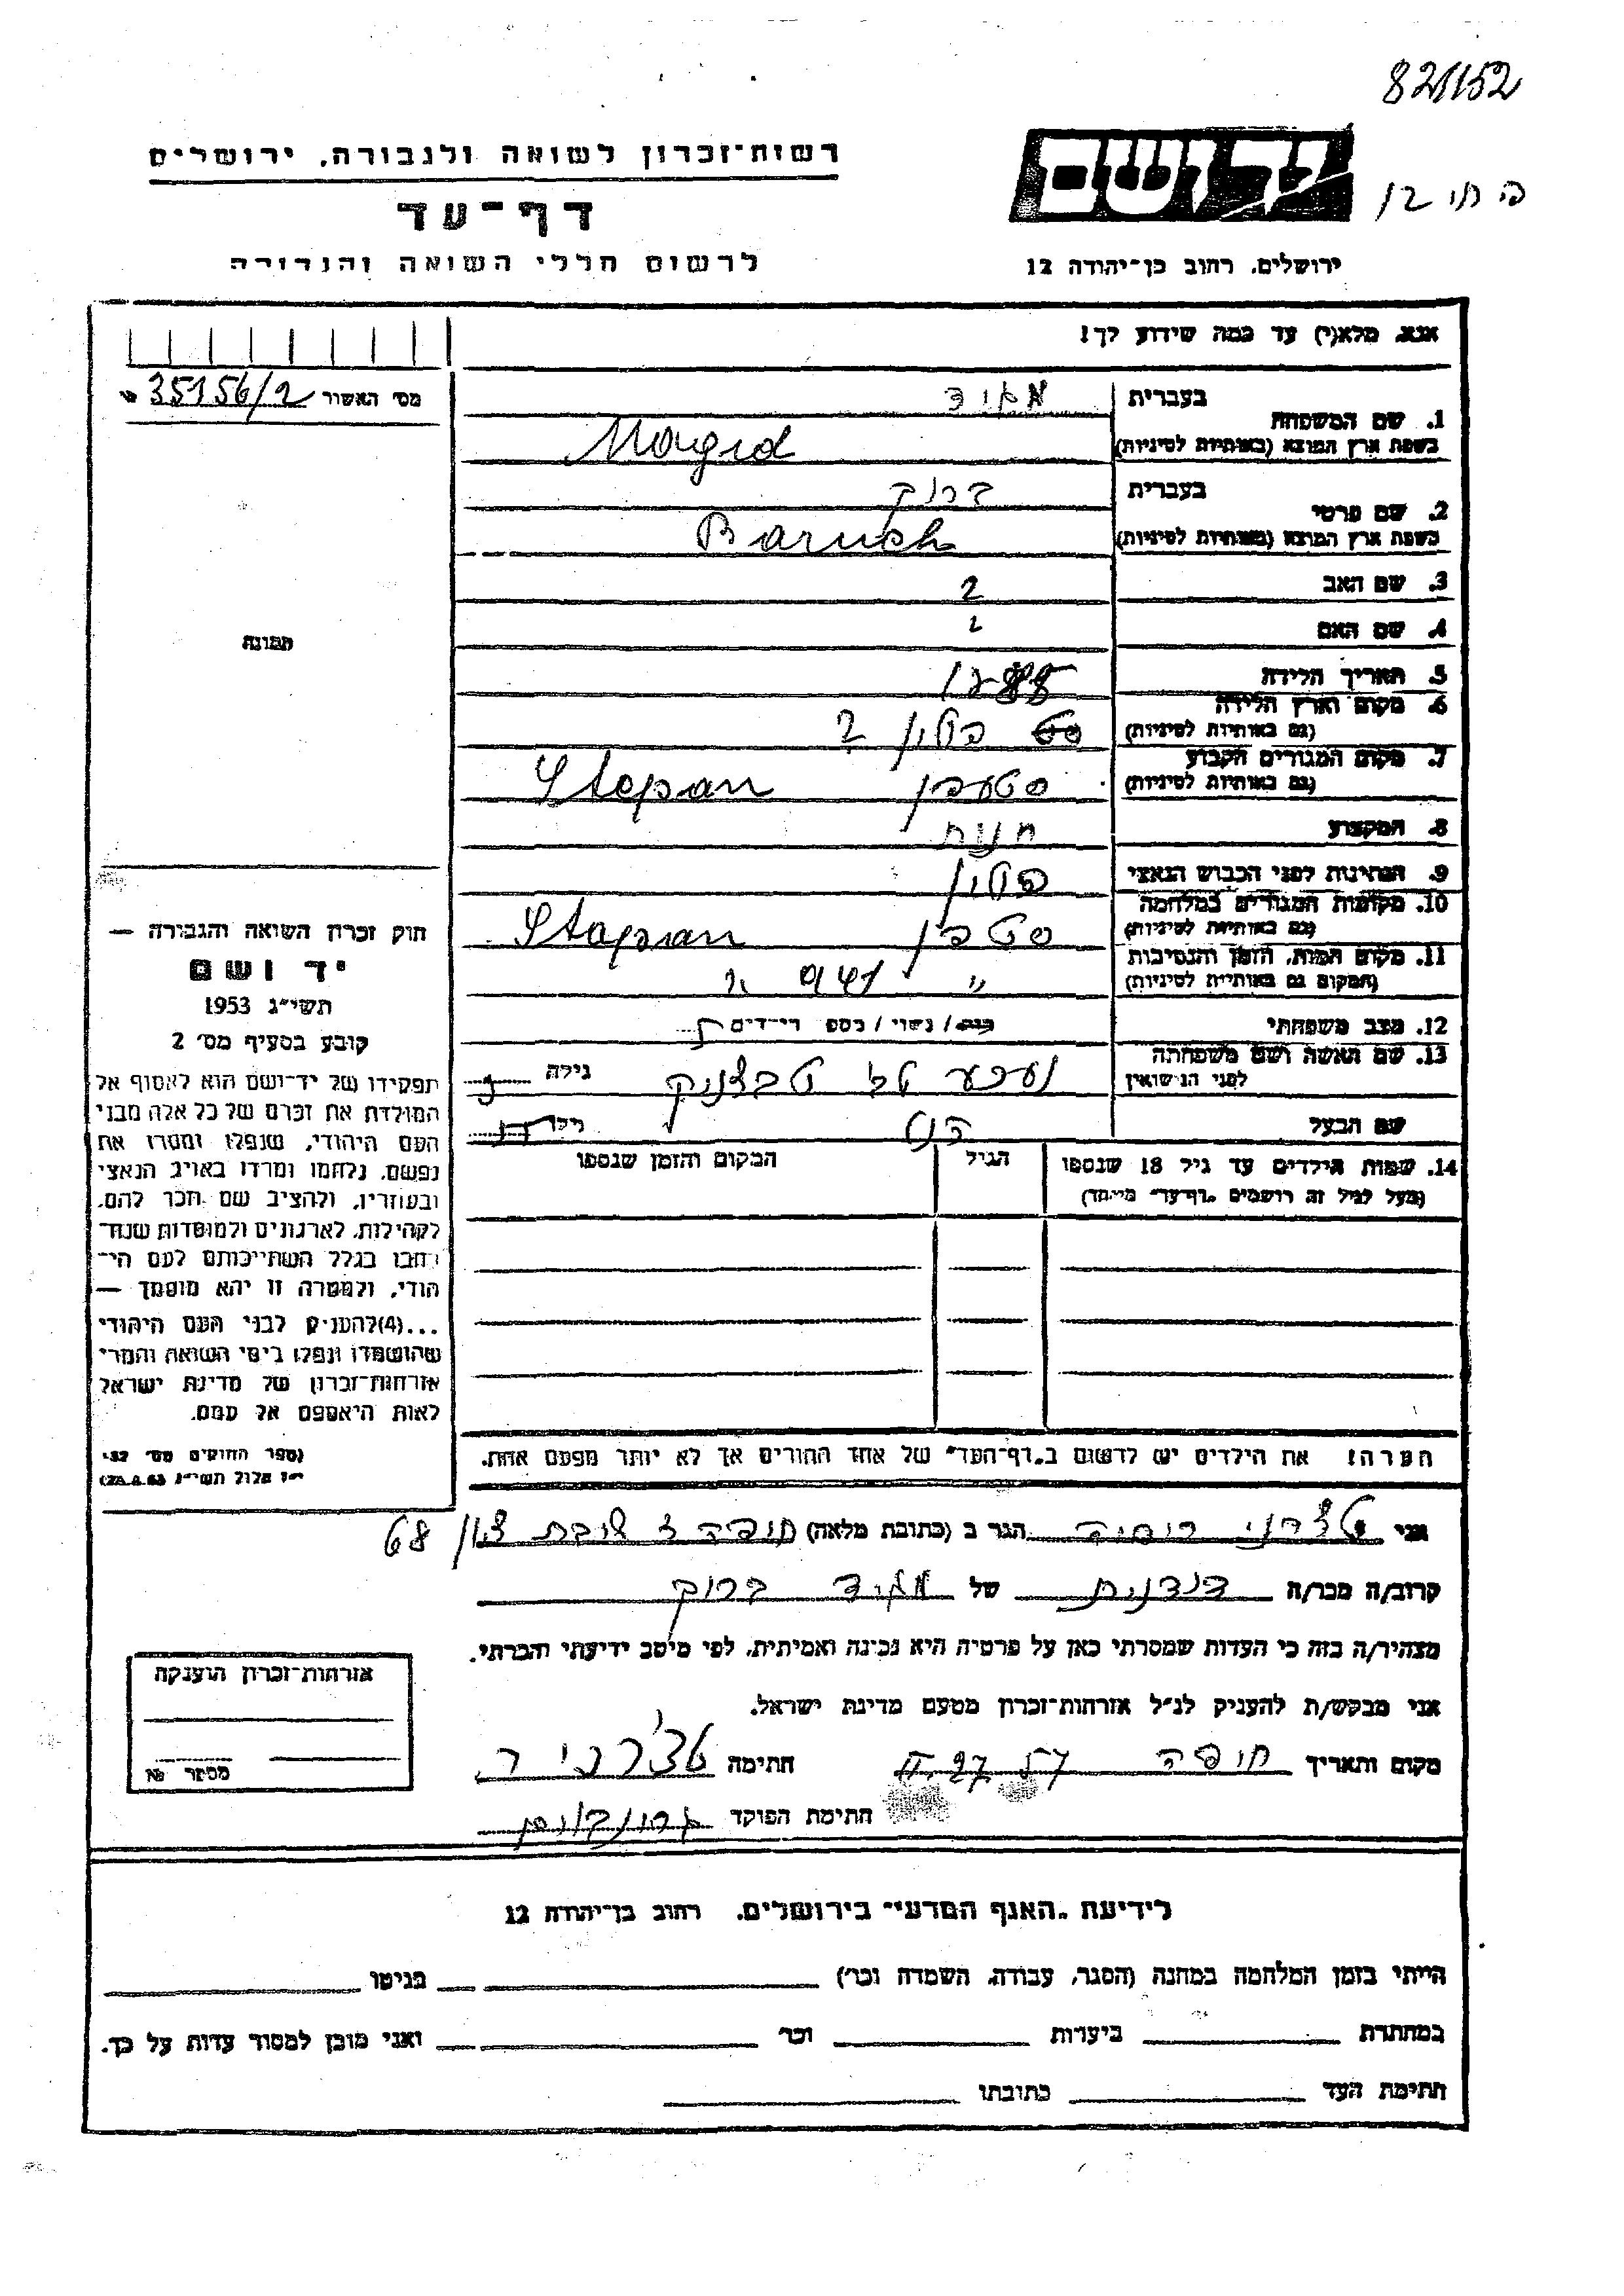 821152
רשות־זכרון לשואה ולגבורה, ירושלים
יד ושם
דף־עד
לרשום חללי השואה והגבורה
ירושלים, רחוב בן־יהודה 12
אנא, מלא(י) עד כמה שידוע לך!
מס׳ האשור 35156/2
1. שם המשפחה
בעברית מגיד
בשפת ארץ המוצא (באותיות לטיניות) Magid
2. שם פרטי
בעברית ברוך
בשפת ארץ המוצא (באותיות לטיניות) Baruch
3. שם האב ?
4. שם האם ?
5. תאריך הלידה
6. מקום וארץ הלידה
(גם באותיות לטיניות) פולין ?
7. מקום המגורים הקבוע
(גם באותיות לטיניות) סטעפן Stepan
8. המקצוע חנות
9. הנתינות לפני הכבוש הנאצי פולין
10. מקומות המגורים במלחמה
(גם באותיות לטיניות) סטפן Stepan
11. מקום המות, הזמן והנסיבות
(המקום גם באותיות לטיניות) ״
12. מצב משפחתי רוק / נשוי / מספר ילדים
13. שם האשה ושם משפחתה
לפני הנישואין גילה
שם הבעל גילו
14. שמות הילדים עד גיל 18 שנספו
(מעל לגיל זה רושמים „דף־עד״ מיוחד)
הגיל
המקום והזמן שנספו
תמונה
חוק זכרון השואה והגבורה —
יד ושם
תשי״ג 1953
קובע בסעיף מס׳ 2
תפקידו של יד־ושם הוא לאסוף אל
המולדת את זכרם של כל אלה מבני
העם היהודי, שנפלו ומסרו את
נפשם, נלחמו ומרדו באויב הנאצי
ובעוזריו, ולהציב שם וזכר להם,
לקהילות, לארגונים ולמוסדות שנח־
רבו בגלל השתייכותם לעם הי־
הודי, ולמטרה זו יהא מוסמך —
...(4)להעניק לבני העם היהודי
שהושמדו ונפלו בימי השואה והמרי
אזרחות־זכרון של מדינת ישראל
לאות היאספם אל עמם.
(ספר החוקים מס׳ 132,
י״ז אלול תשי״ג 28.8.53)
הערה! את הילדים יש לרשום ב„דף־העד״ של אחד ההורים אך לא יותר מפעם אחת.
אני הגר ב (כתובת מלאה) חיפה 68
קרוב/ה מכר/ה בת דודה של מגיד ברוך
מצהיר/ה בזה כי העדות שמסרתי כאן על פרטיה היא נכונה ואמיתית, לפי מיטב ידיעתי והכרתי.
אני מבקש/ת להעניק לנ״ל אזרחות־זכרון מטעם מדינת ישראל.
מקום ותאריך חיפה חתימה
חתימת הפוקד
אזרחות־זכרון הוענקה
מספר №
לידיעת „האגף המדעי״ בירושלים, רחוב בן־יהודה 12
הייתי בזמן המלחמה במחנה (הסגר, עבודה, השמדה וכר׳) בגיטו
במחתרת ביערות וכר׳ ואני מוכן למסור עדות על כך.
חתימת העד כתובתו